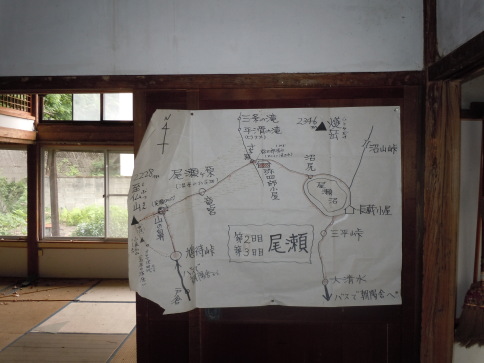 三条の滝
平滑の滝
2346
燧岳
沼山峠
尾瀬ヶ原
弥四郎小屋
沼尻
2228
至仏山
竜宮
山の鼻
尾瀬沼
長蔵小屋
三平峠
第2日目
第3日目
尾瀬
鳩待峠
戸倉
大清水
バスで朝陽会へ